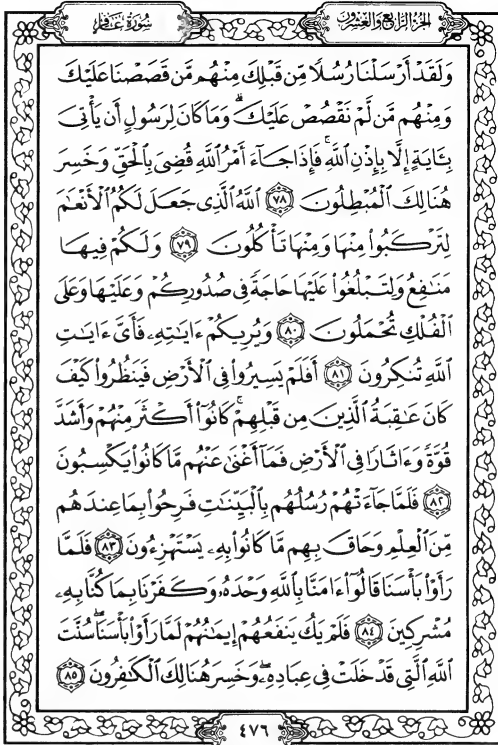 الجزء الرابع والعشرون
سورة غافر
وَلَقَدْ أَرْسَلْنَا رُسُلًا مِّن قَبْلِكَ مِنْهُم مَّن قَصَصْنَا عَلَيْكَ
وَمِنْهُم مَّن لَّمْ نَقْصُصْ عَلَيْكَ ۗ وَمَا كَانَ لِرَسُولٍ أَن يَأْتِىَ
بِـَٔايَةٍ إِلَّا بِإِذْنِ ٱللَّهِ ۚ فَإِذَا جَآءَ أَمْرُ ٱللَّهِ قُضِىَ بِٱلْحَقِّ وَخَسِرَ
هُنَالِكَ ٱلْمُبْطِلُونَ ﴿٧٨﴾ ٱللَّهُ ٱلَّذِى جَعَلَ لَكُمُ ٱلْأَنْعَٰمَ
لِتَرْكَبُوا۟ مِنْهَا وَمِنْهَا تَأْكُلُونَ ﴿٧٩﴾ وَلَكُمْ فِيهَا
مَنَٰفِعُ وَلِتَبْلُغُوا۟ عَلَيْهَا حَاجَةً فِى صُدُورِكُمْ وَعَلَيْهَا وَعَلَى
ٱلْفُلْكِ تُحْمَلُونَ ﴿٨٠﴾ وَيُرِيكُمْ ءَايَٰتِهِۦ فَأَىَّ ءَايَٰتِ
ٱللَّهِ تُنكِرُونَ ﴿٨١﴾ أَفَلَمْ يَسِيرُوا۟ فِى ٱلْأَرْضِ فَيَنظُرُوا۟ كَيْفَ
كَانَ عَٰقِبَةُ ٱلَّذِينَ مِن قَبْلِهِمْ ۚ كَانُوٓا۟ أَكْثَرَ مِنْهُمْ وَأَشَدَّ
قُوَّةً وَءَاثَارًا فِى ٱلْأَرْضِ فَمَآ أَغْنَىٰ عَنْهُم مَّا كَانُوا۟ يَكْسِبُونَ
﴿٨٢﴾ فَلَمَّا جَآءَتْهُمْ رُسُلُهُم بِٱلْبَيِّنَٰتِ فَرِحُوا۟ بِمَا عِندَهُم
مِّنَ ٱلْعِلْمِ وَحَاقَ بِهِم مَّا كَانُوا۟ بِهِۦ يَسْتَهْزِءُونَ ﴿٨٣﴾ فَلَمَّا
رَأَوْا۟ بَأْسَنَا قَالُوٓا۟ ءَامَنَّا بِٱللَّهِ وَحْدَهُۥ وَكَفَرْنَا بِمَا كُنَّا بِهِۦ
مُشْرِكِينَ ﴿٨٤﴾ فَلَمْ يَكُ يَنفَعُهُمْ إِيمَٰنُهُمْ لَمَّا رَأَوْا۟ بَأْسَنَا ۖ سُنَّتَ
ٱللَّهِ ٱلَّتِى قَدْ خَلَتْ فِى عِبَادِهِۦ ۖ وَخَسِرَ هُنَالِكَ ٱلْكَٰفِرُونَ ﴿٨٥﴾
٤٧٦